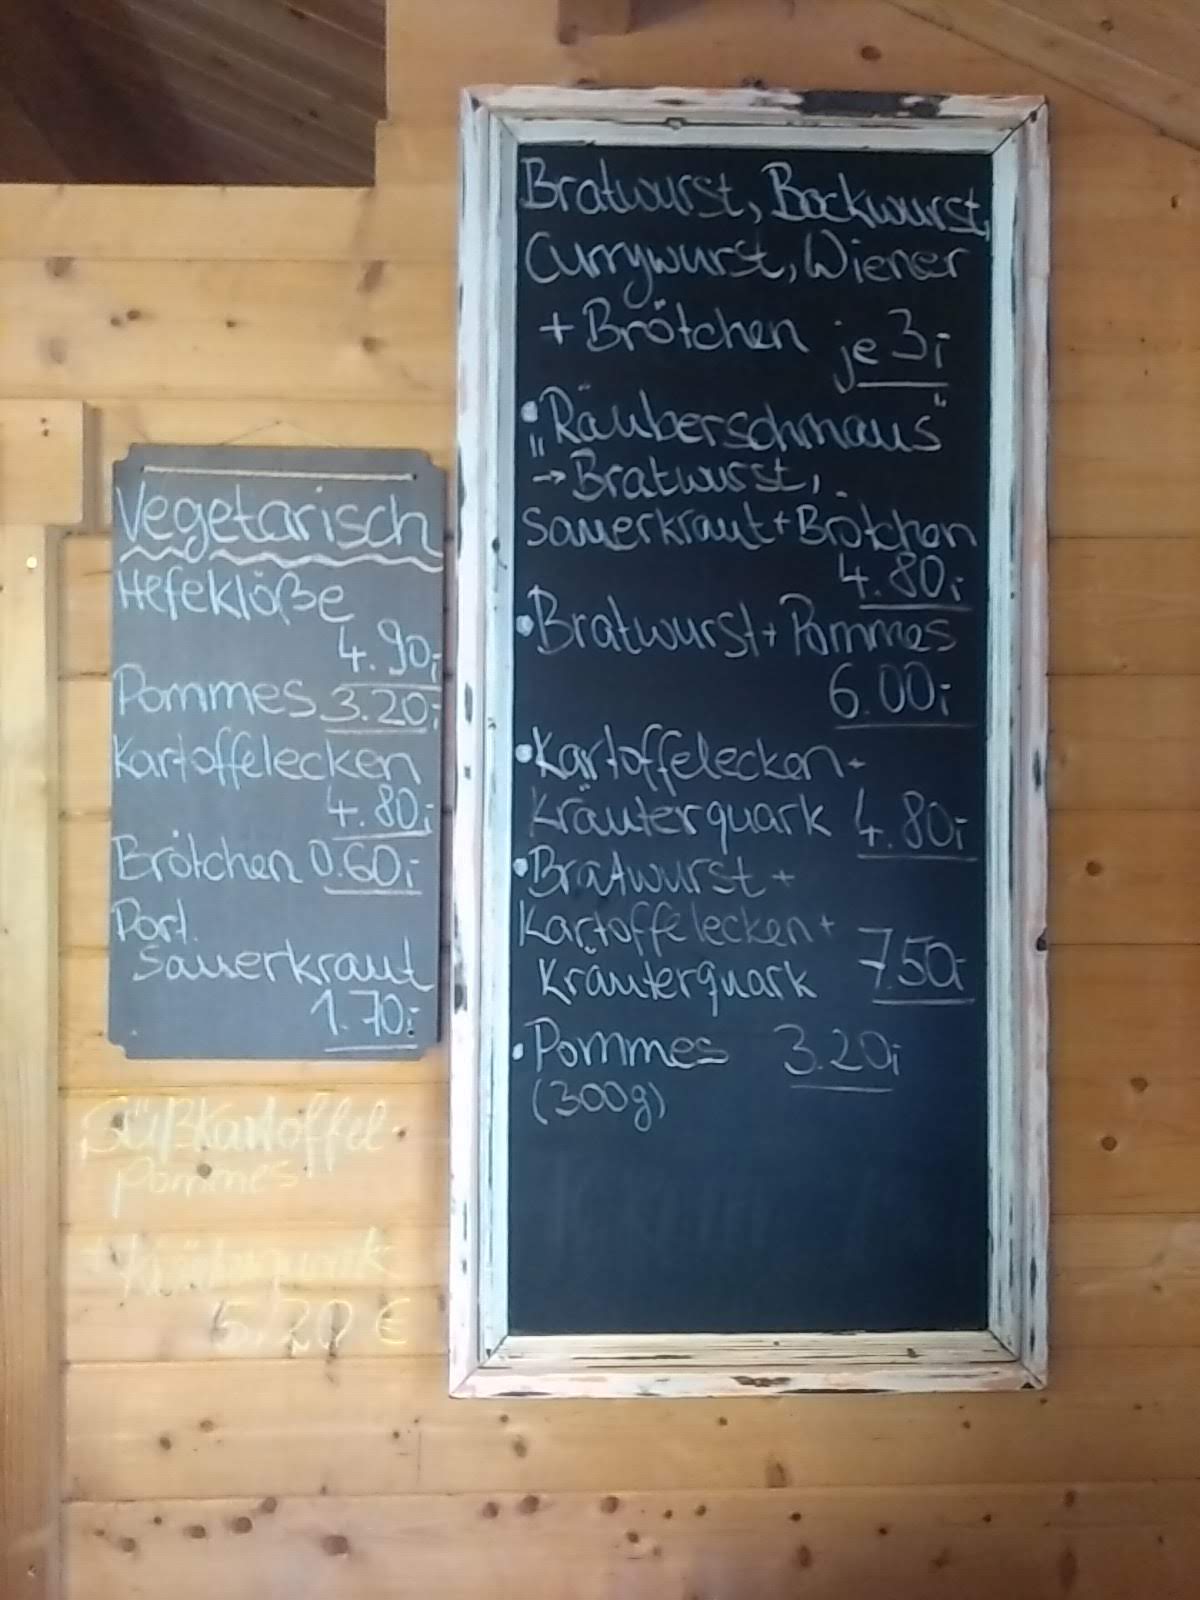 Vegetarisch
Hefeklöße
4.90,-
Pommes 3.20,-
Kartoffelecken
4.80,-
Brötchen 0.60,-
Port.
Sauerkraut
1.70,-
Süßkartoffel-
Pommes
+ Kräuterquark
5,20 €
Bratwurst, Bockwurst,
Currywurst, Wiener
+ Brötchen je 3,-
• „Räuberschmaus"
→ Bratwurst,
Sauerkraut + Brötchen
4.80,-
• Bratwurst + Pommes
6.00,-
• Kartoffelecken +
Kräuterquark 4.80,-
• Bratwurst +
Kartoffelecken +
Kräuterquark 7.50,-
• Pommes 3.20,-
(300g)